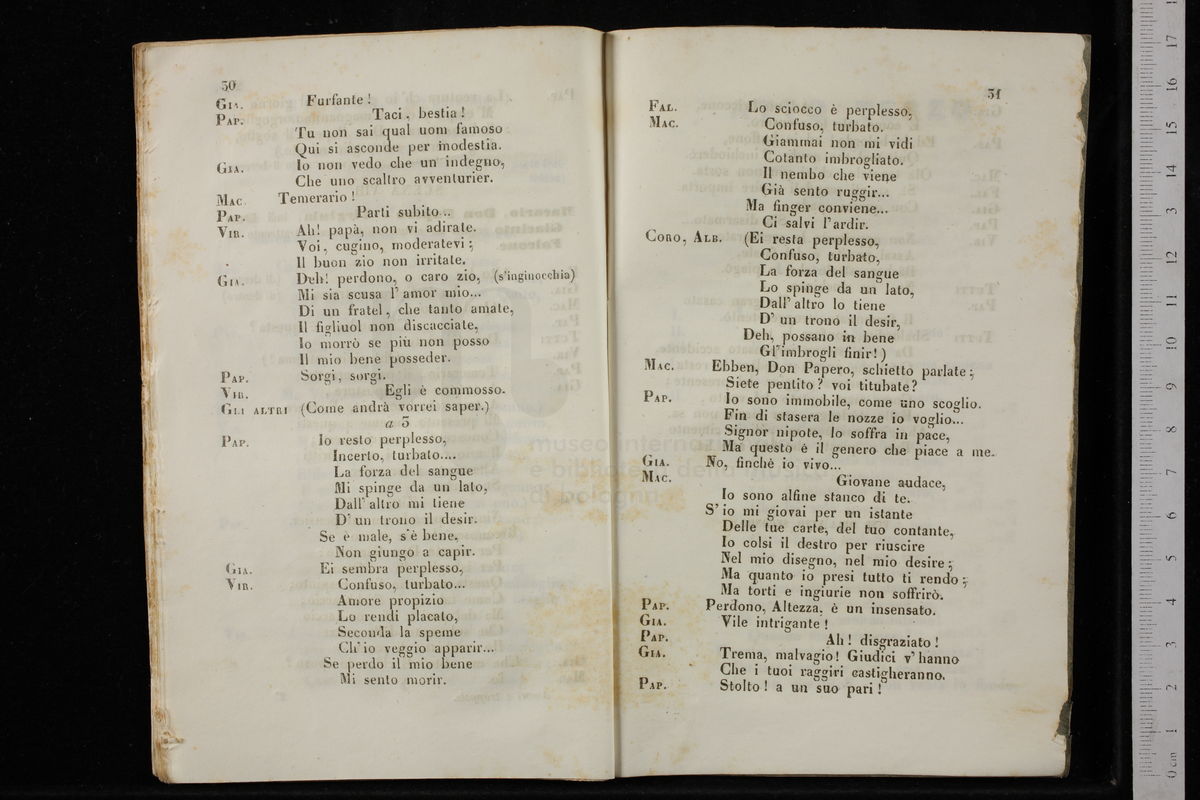 30
GIA. Furfante !
PAP. Taci, bestia !
Tu non sai qual uom famoso
Qui si asconde per modestia.
GIA. Io non vedo che un indegno,
Che uno scaltro avventurier.
MAC. Temerario !
PAP. Parti subito...
VIR. Ah! papà, non vi adirate.
Voi, cugino, moderatevi;
Il buon zio non irritate.
GIA. Deh! perdono, o caro zio, (s'inginocchia)
Mi sia scusa l'amor mio...
Di un fratel, che tanto amate,
Il figliuol non discacciate,
Io morrò se più non posso
Il mio bene posseder.
PAP. Sorgi, sorgi.
VIR. Egli è commosso.
GLI ALTRI (Come andrà vorrei saper.)
a 3
PAP. Io resto perplesso,
Incerto, turbato....
La forza del sangue
Mi spinge da un lato,
Dall'altro mi tiene
D'un trono il desir.
Se è male, s'è bene,
Non giungo a capir.
GIA. Ei sembra perplesso,
VIR. Confuso, turbato...
Amore propizio
Lo rendi placato,
Seconda la speme
Ch'io veggio apparir...
Se perdo il mio bene
Mi sento morir.
31
FAL. Lo sciocco è perplesso,
MAC. Confuso, turbato.
Giammai non mi vidi
Cotanto imbrogliato.
Il nembo che viene
Già sento ruggir...
Ma finger conviene...
Ci salvi l'ardir.
CORO, ALB. (Ei resta perplesso,
Confuso, turbato,
La forza del sangue
Lo spinge da un lato,
Dall'altro lo tiene
D'un trono il desir,
Deh, possano in bene
Gl'imbrogli finir!)
MAC. Ebben, Don Papero, schietto parlate;
Siete pentito? voi titubate?
PAP. Io sono immobile, come uno scoglio.
Fin di stasera le nozze io voglio...
Signor nipote, lo soffra in pace,
Ma questo è il genero che piace a me.
GIA. No, finchè io vivo...
MAC. Giovane audace,
Io sono alfine stanco di te.
S'io mi giovai per un istante
Delle tue carte, del tuo contante,
Io colsi il destro per riuscire
Nel mio disegno, nel mio desire;
Ma quanto io presi tutto ti rendo;
Ma torti e ingiurie non soffrirò.
PAP. Perdono, Altezza, è un insensato.
GIA. Vile intrigante !
PAP. Ah! disgraziato !
GIA. Trema, malvagio! Giudici v'hanno
Che i tuoi raggiri castigheranno.
PAP. Stolto ! a un suo pari !
museo interna
e biblioteca della musica
di bologna